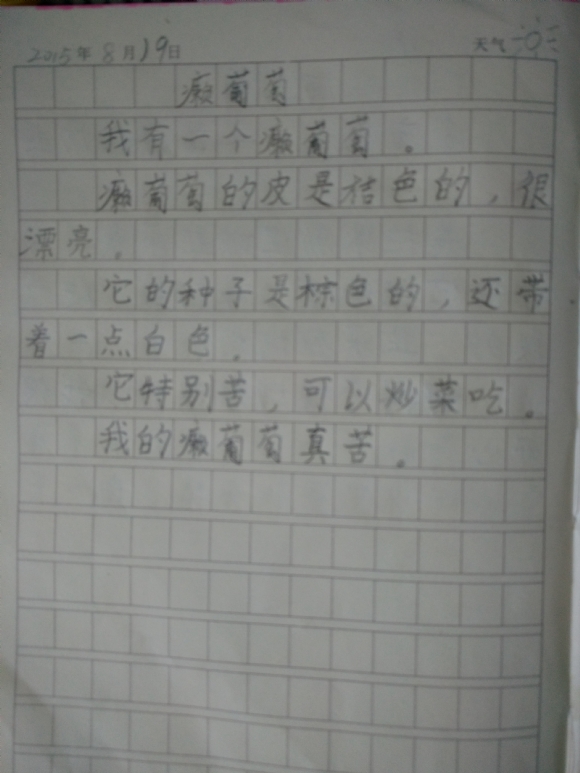 2015年8月19日 天气
癞葡萄
我有一个癞葡萄。
癞葡萄的皮是桔色的，很
漂亮。
它的种子是棕色的，还带
着一点白色。
它特别苦，可以炒菜吃。
我的癞葡萄真苦。